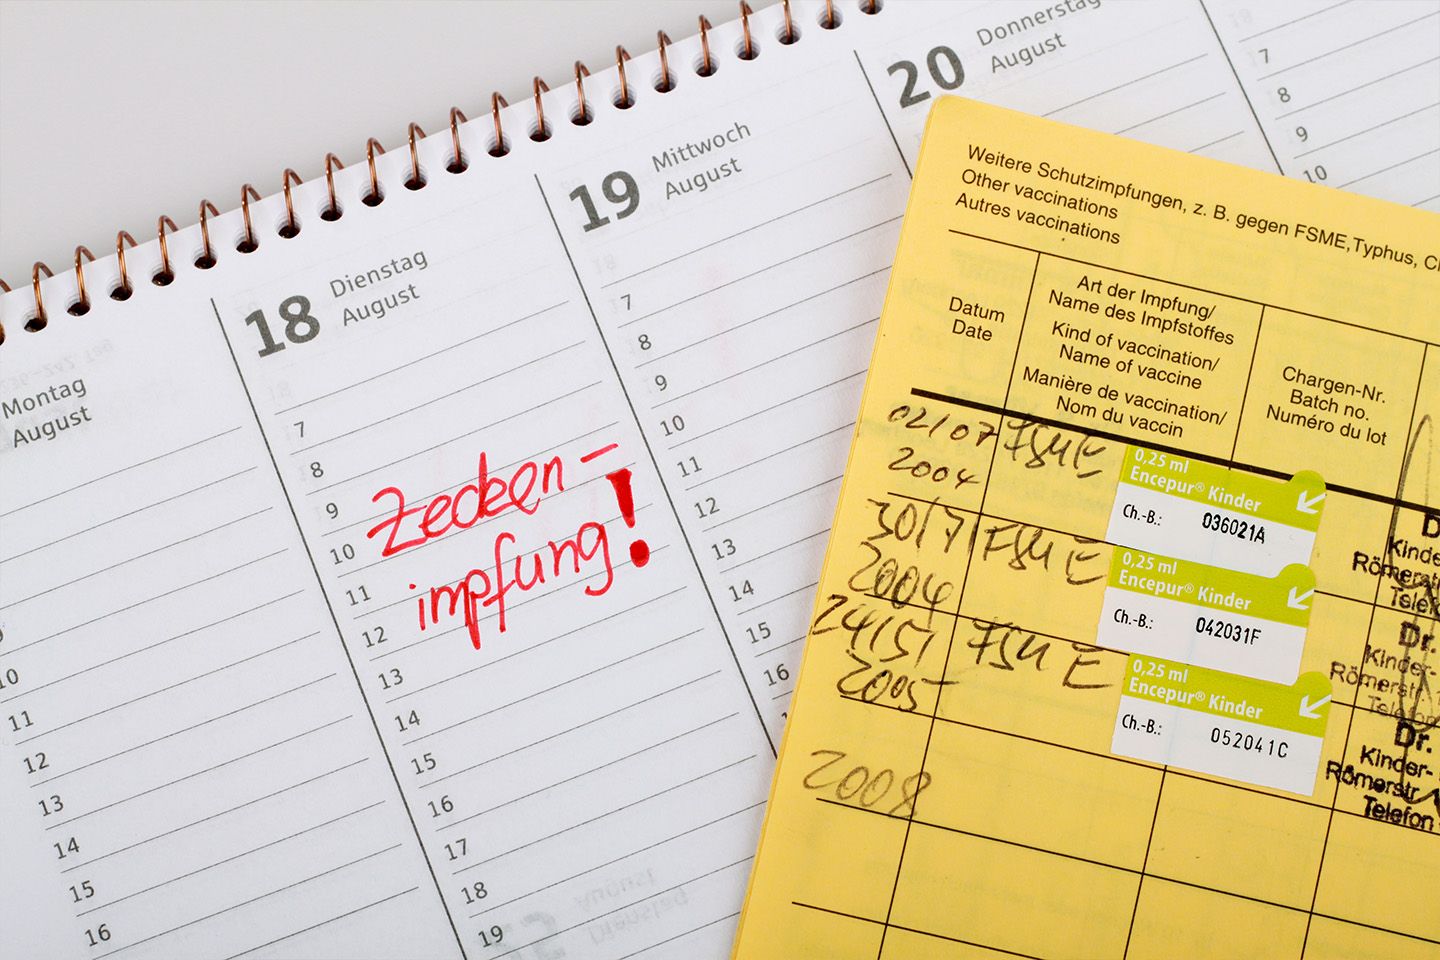 Montag
August
18 Dienstag
August
19 Mittwoch
August
20 Donnerstag
August
7
8
9
10
10
11
12
13
14
15
16
7
8
9
10
11
12
13
14
15
16
17
18
19
Zecken-
impfung!
7
8
9
10
11
12
13
14
15
16
Weitere Schutzimpfungen, z. B. gegen FSME, Typhus,
Other vaccinations
Autres vaccinations
Datum
Date
Art der Impfung/
Name des Impfstoffes
Kind of vaccination/
Name of vaccine
Manière de vaccination/
Nom du vaccin
Chargen-Nr.
Batch no.
Numéro du lot
02/07 FSME
2004
0,25 ml
Encepur® Kinder
Ch.-B.: 036021A
30/7/ FSME
2004
0,25 ml
Encepur® Kinder
Ch.-B.: 042031F
Dr.
Kinder-
Römerstr.
Telefon
24/5/ FSME
2005
0,25 ml
Encepur® Kinder
Ch.-B.: 052041C
Dr.
Kinder-
Römerstr.
Telefon
2008